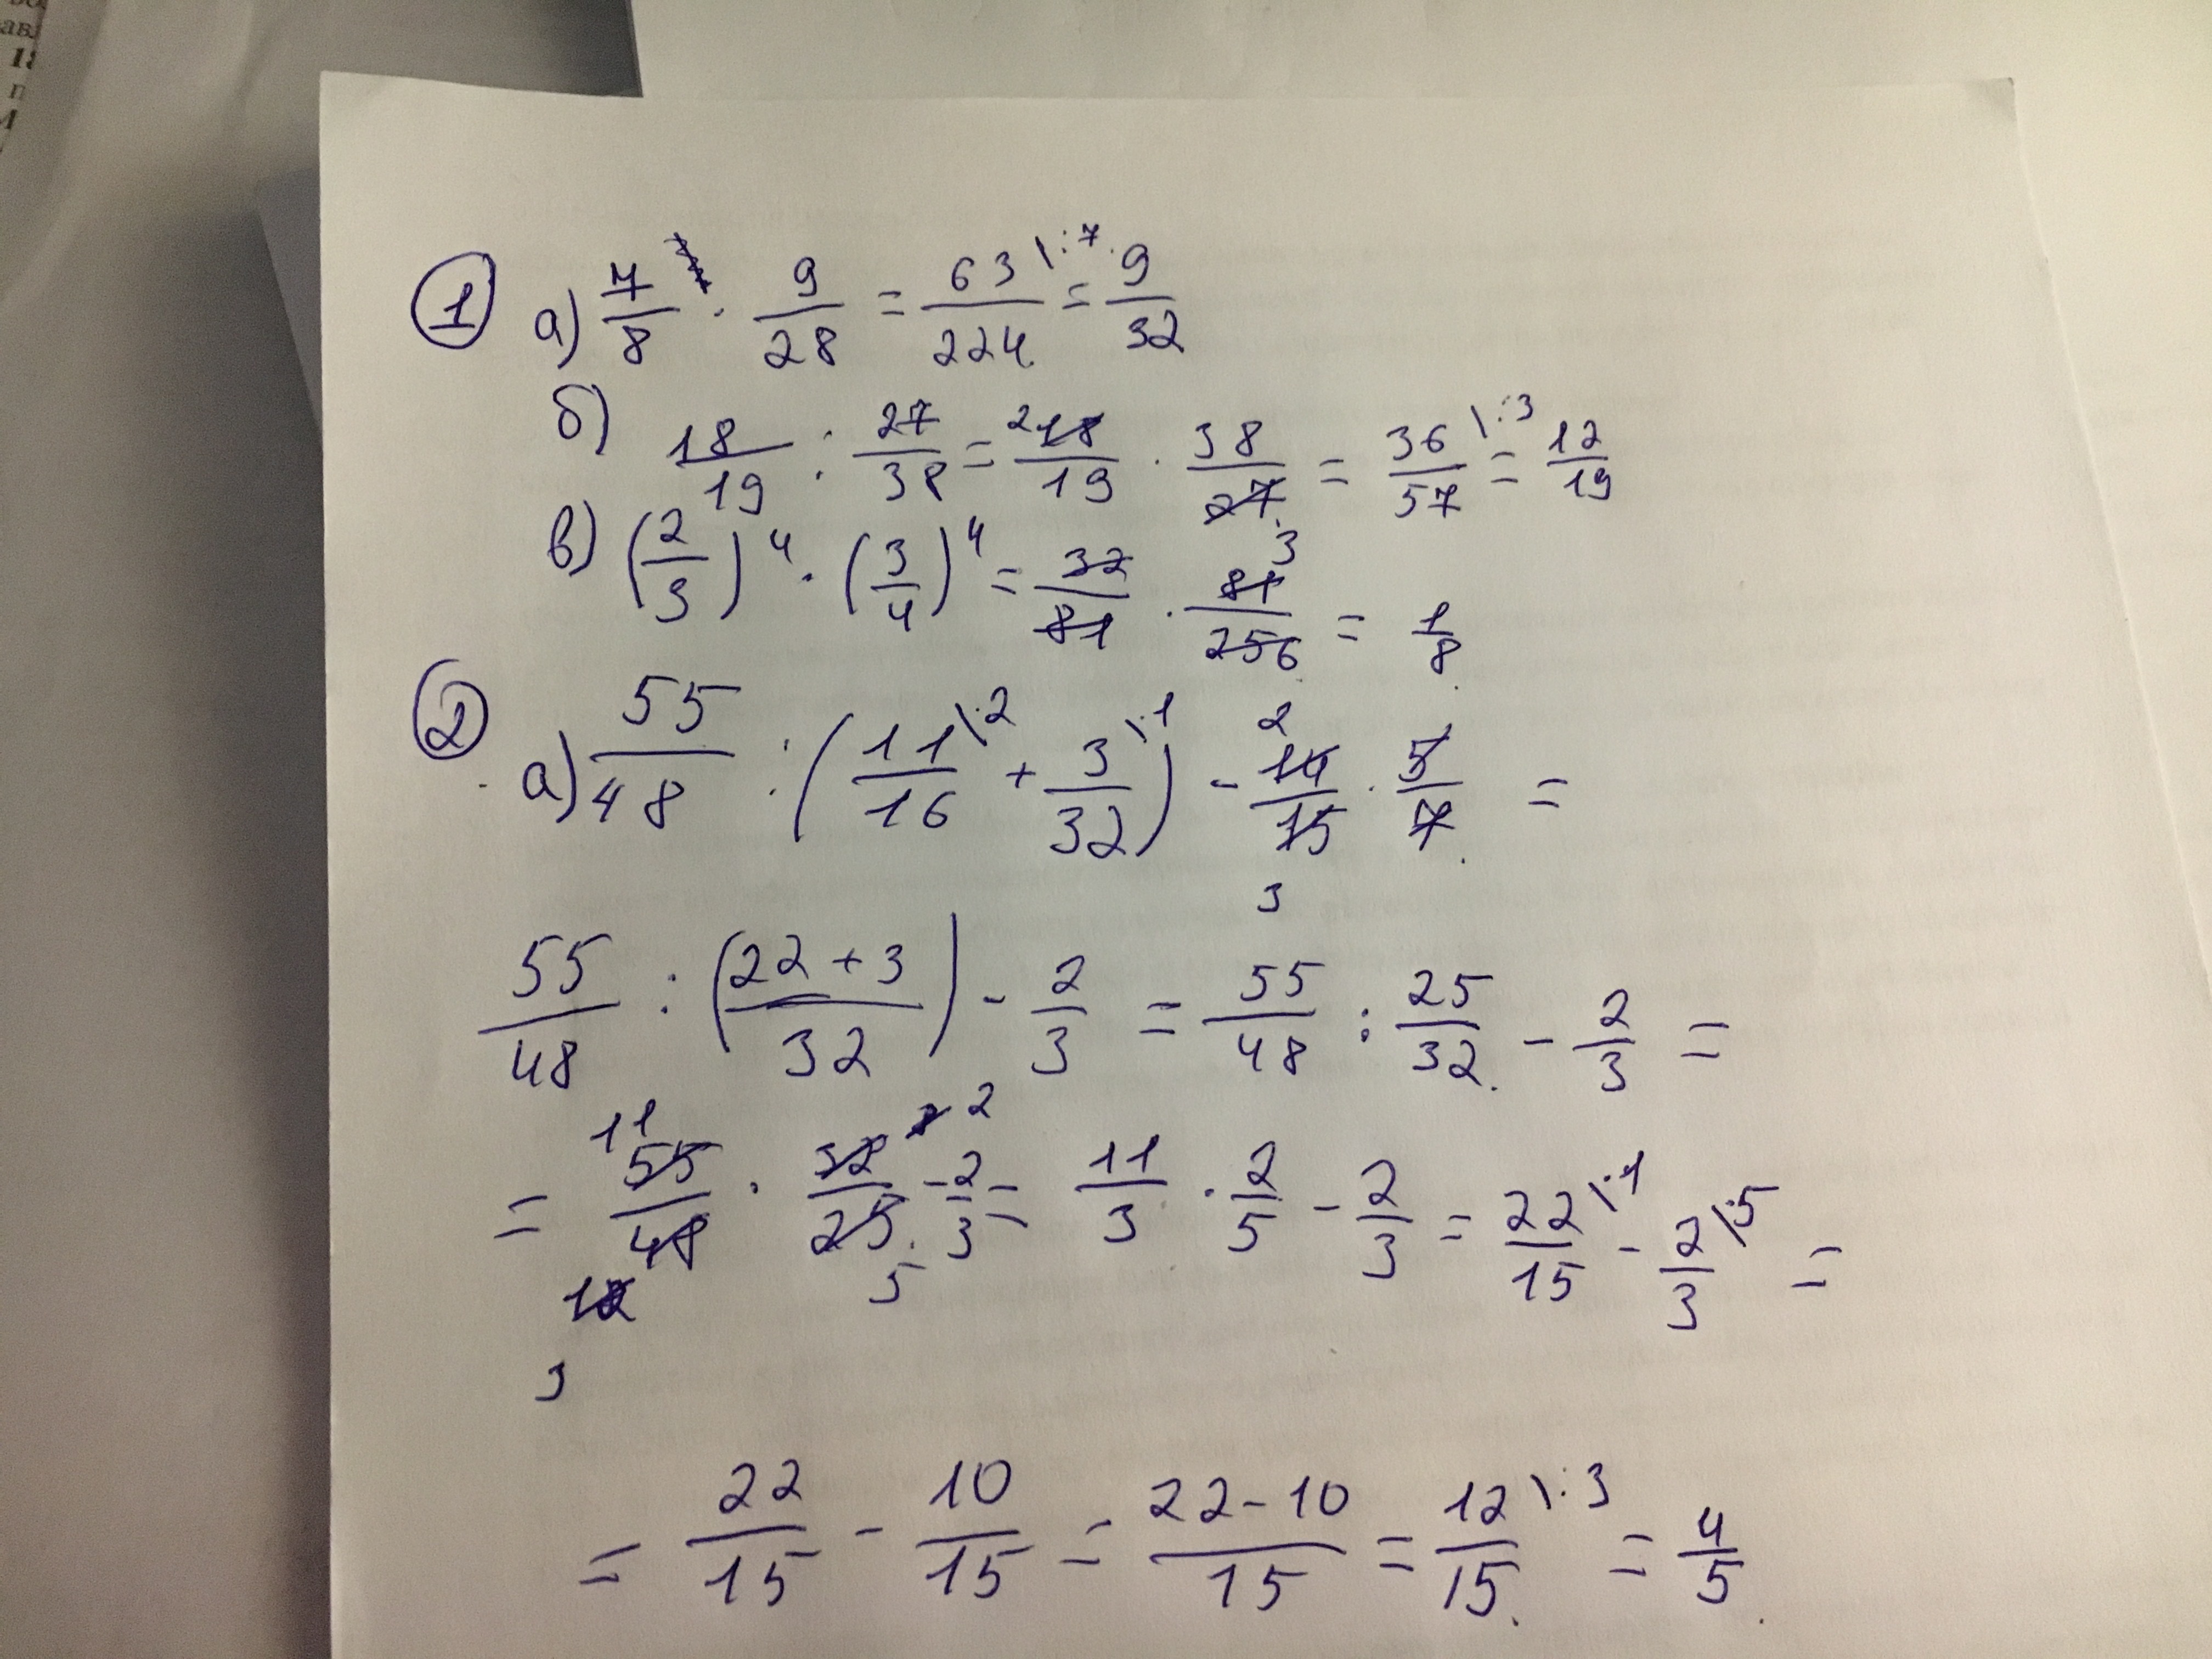 ав
18
п
М
① а) 7/8 · 9/28 = 63/224 \:7 = 9/32
б) 18/19 : 27/38 = 2 18/19 · 38/27 3 = 36/57 \:3 = 12/19
в) (2/3)^4 · (3/4)^4 = 32/81 · 81/256 = 1/8
② а) 55/48 : (11/16 \·2 + 3/32 \·1) - 2 14/15 3 · 5/7 =
55/48 : ((22+3)/32) - 2/3 = 55/48 : 25/32 - 2/3 =
= 11 55/48 12 3 · 32/25 2 5 - 2/3 = 11/3 · 2/5 - 2/3 = 22/15 \·1 - 2/3 \·5 =
= 22/15 - 10/15 = (22-10)/15 = 12/15 \:3 = 4/5